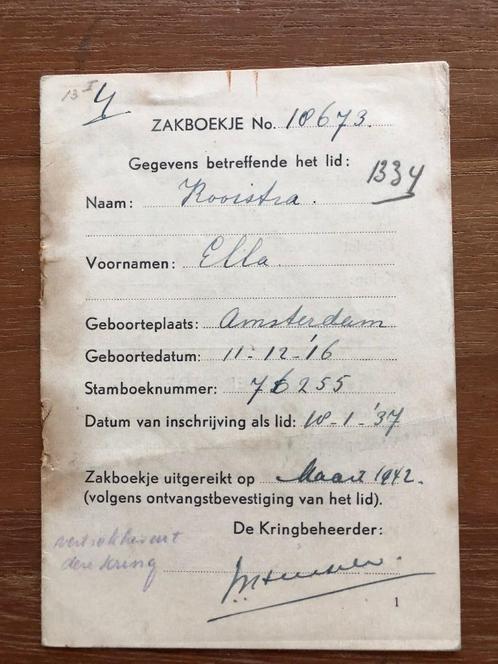 13 I 4
ZAKBOEKJE No. 10673.
Gegevens betreffende het lid:
1334
Naam: Kooistra.
Voornamen: Ella
Geboorteplaats: Amsterdam
Geboortedatum: 11-12-'16
Stamboeknummer: 76255
Datum van inschrijving als lid: 18-1-'37
Zakboekje uitgereikt op Maart 1942.
(volgens ontvangstbevestiging van het lid).
De Kringbeheerder:
dere Kring
1